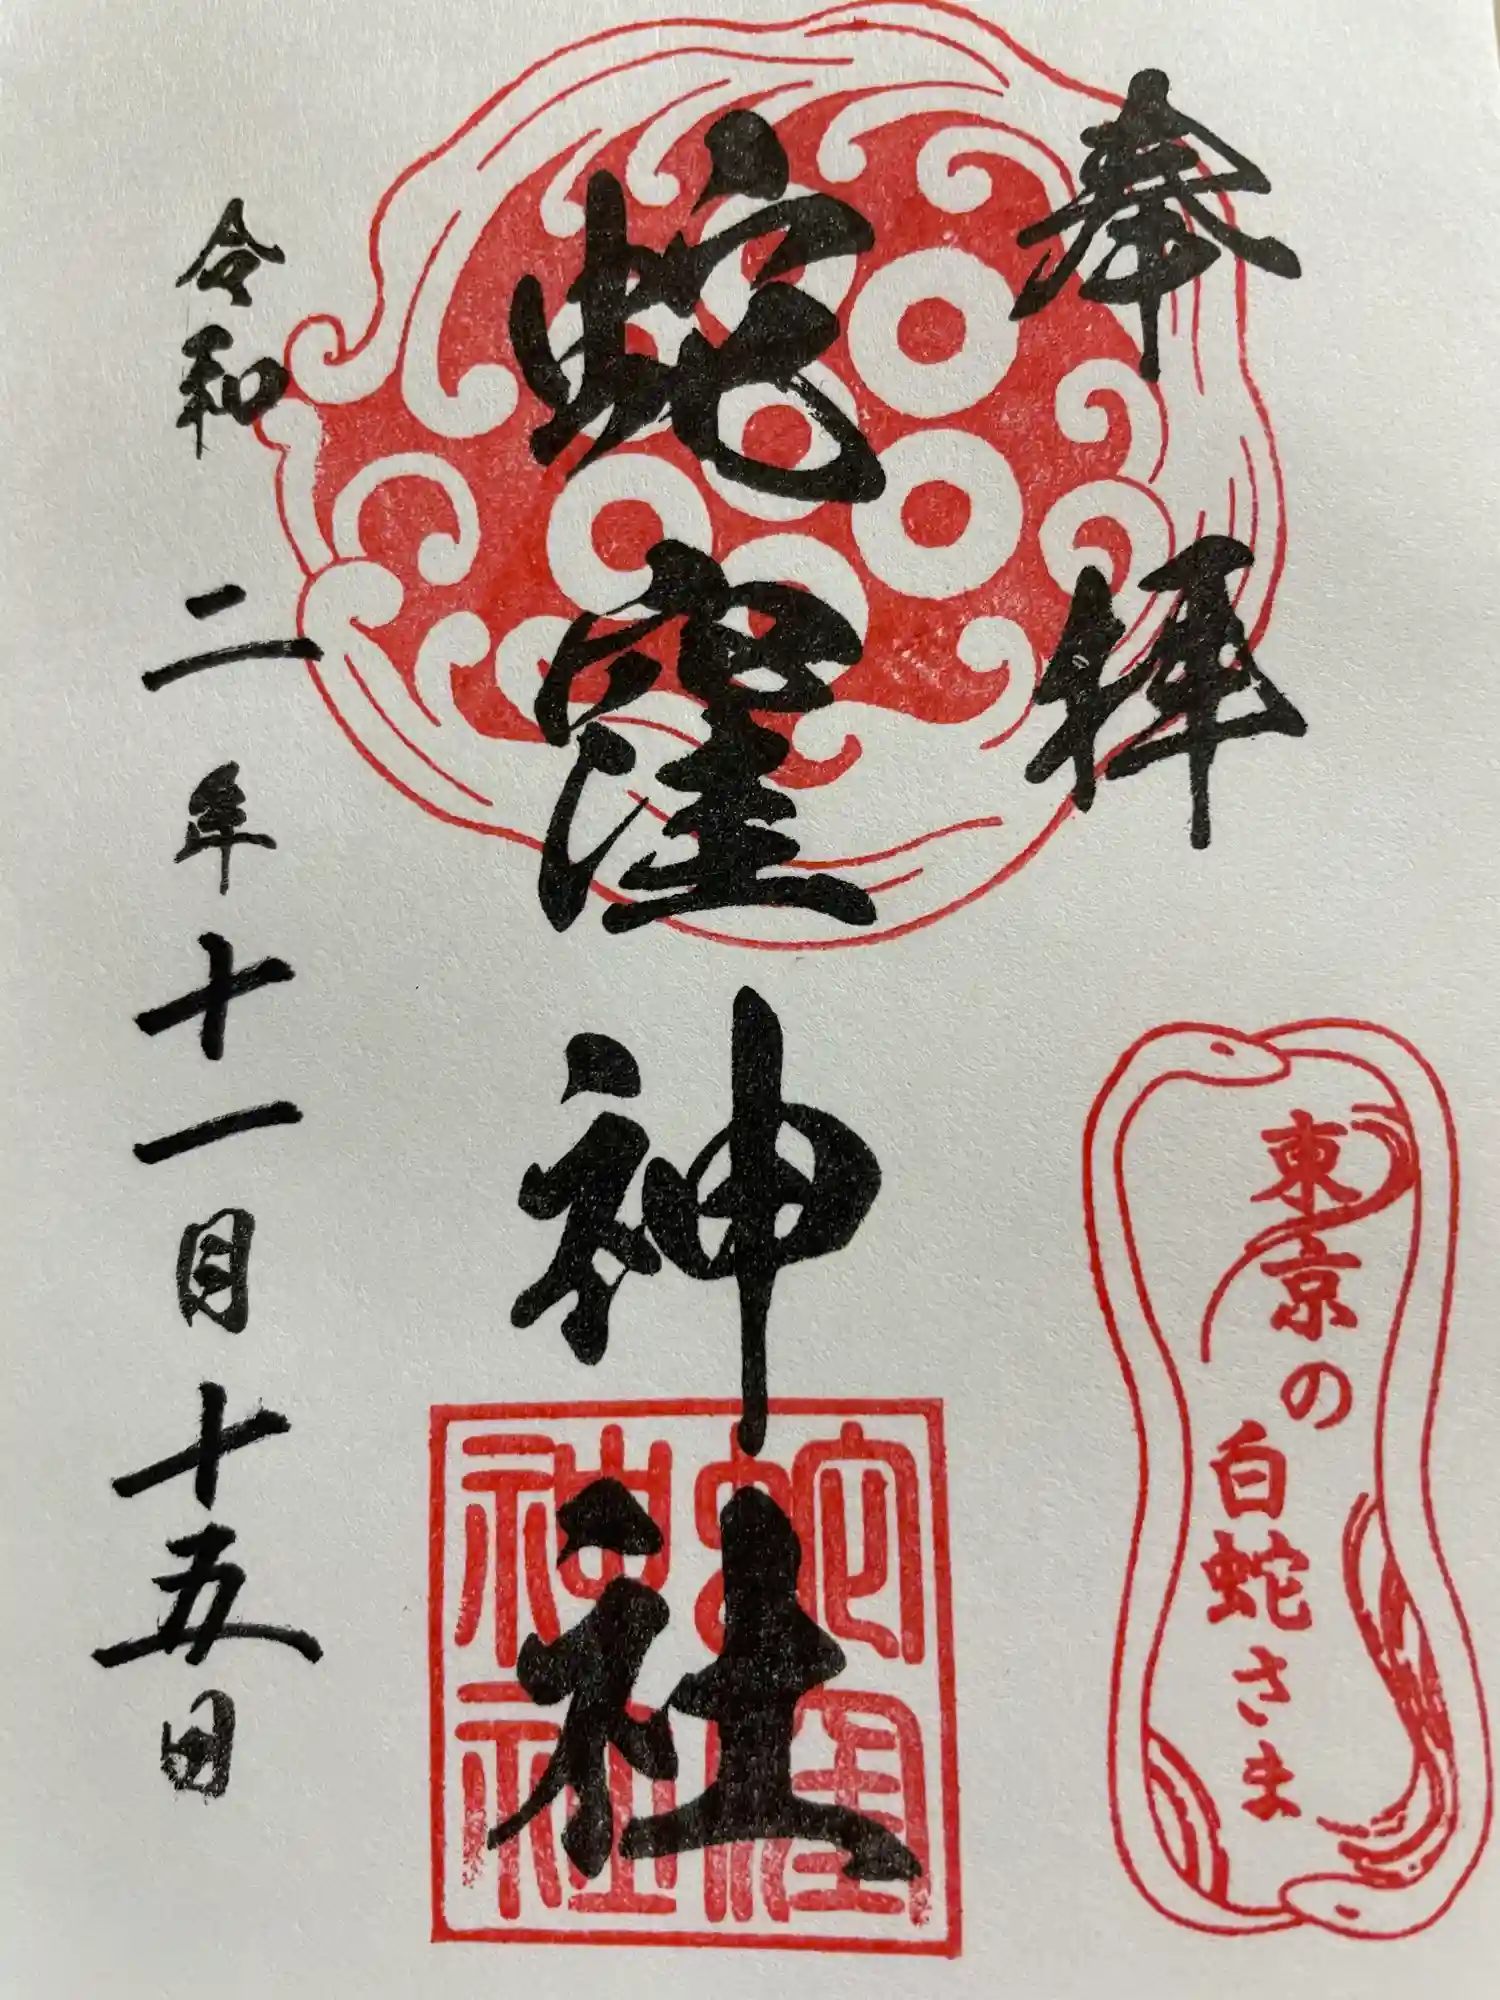 奉拝
東京の
白蛇さま
蛇窪神社
蛇窪
神社
令和二年十一月十五日